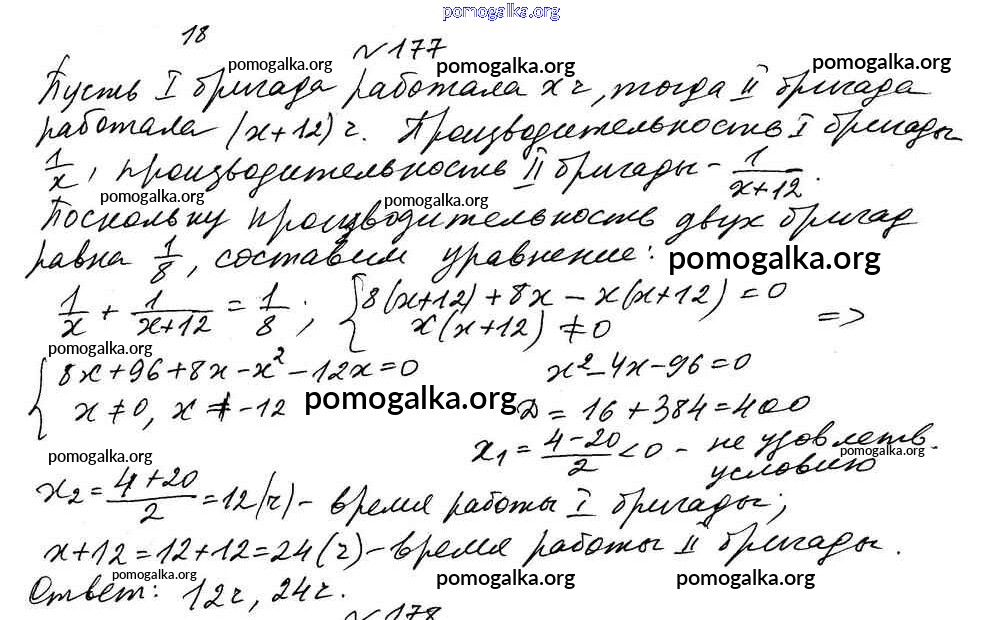 pomogalka.org
18
№177
pomogalka.org pomogalka.org pomogalka.org
Пусть I бригада работала x ч, тогда II бригада
работала (x+12) ч. Производительность I бригады
1/x, производительность II бригады - 1/(x+12).
pomogalka.org pomogalka.org
Поскольку производительность двух бригад
равна 1/8, составим уравнение: pomogalka.org
1/x + 1/(x+12) = 1/8; { 8(x+12)+8x-x(x+12)=0
x(x+12)≠0 =>
pomogalka.org
{ 8x+96+8x-x²-12x=0 x²-4x-96=0
x≠0, x≠-12 pomogalka.org Д=16+384=400
x₁=(4-20)/2<0 - не удовлетв.
pomogalka.org условию pomogalka.org
x₂=(4+20)/2=12(ч) - время работы I бригады;
x+12=12+12=24(ч) - время работы II бригады.
pomogalka.org pomogalka.org pomogalka.org
Ответ: 12ч, 24ч.
№178